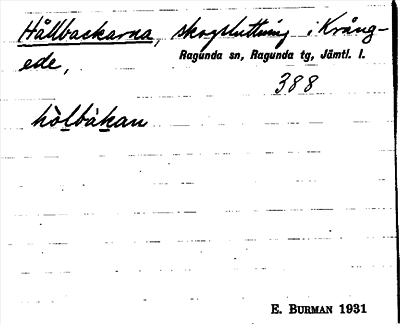 Hållbackarna, skogsluttning i Krång-
ede,
Ragunda sn, Ragunda tg, Jämtl. l.
388
hòlbàkan
E. BURMAN 1931